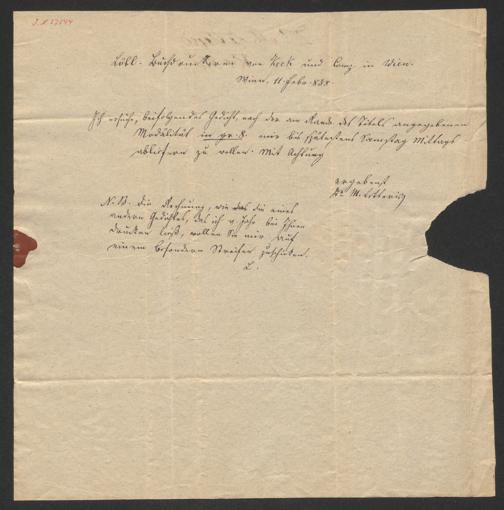 J.N 17144
Löbl. Buchdruckerei von Keck und Comp. in Wien.
Wien, 11. Febr. 838.
Ich ersuche, beifolgendes Gedicht, nach der am Rande des Titels angegebenen
Modalität in gr. 8. mir bis spätestens Samstag Mittags
abliefern zu wollen. Mit Achtung
ergebenst
Dr. M. Letteris
N.B. Die Rechnung, wie das die eines
andern Gedichtes, das ich v. Jahr bei Ihnen
drucken ließ, wollen Sie mir auf
einem besondern Streifen zuschicken.
L.